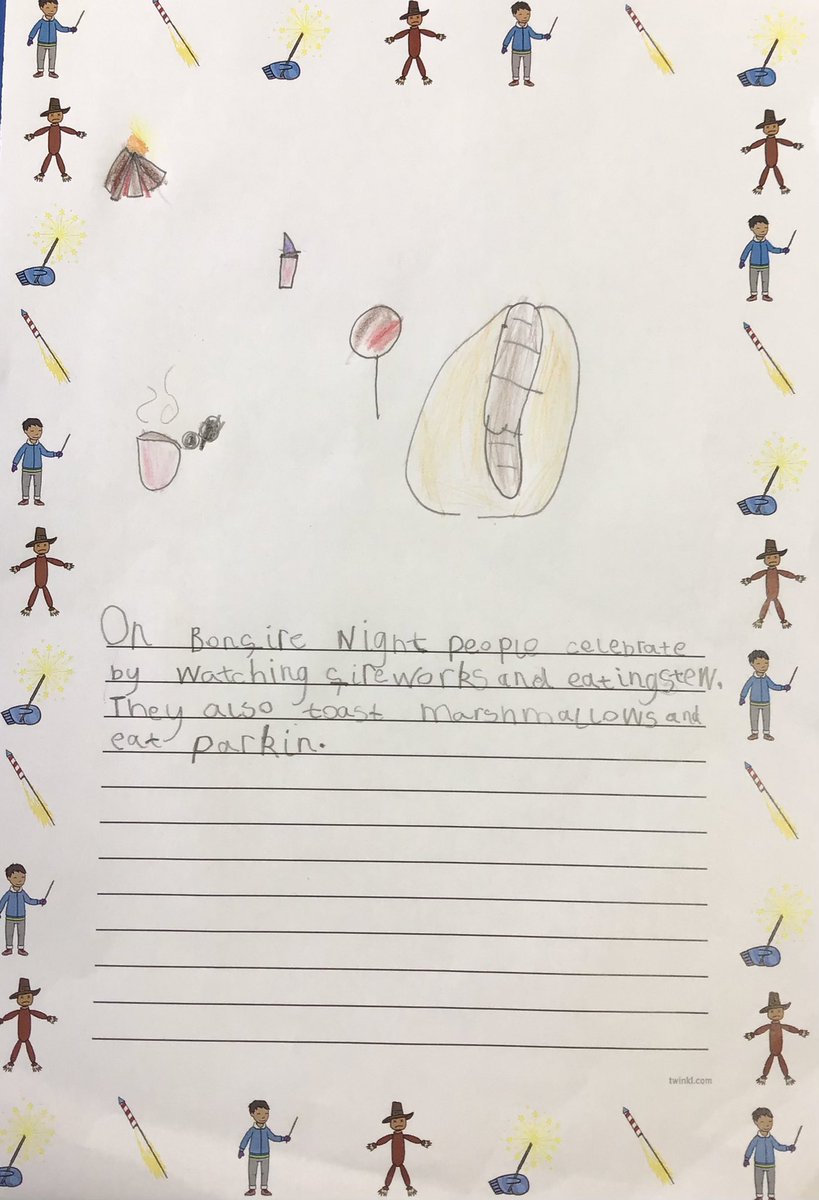 On Bonfire Night people celebrate
by watching fireworks and eating stew.
They also toast marshmallows and
eat parkin.
twinkl.com